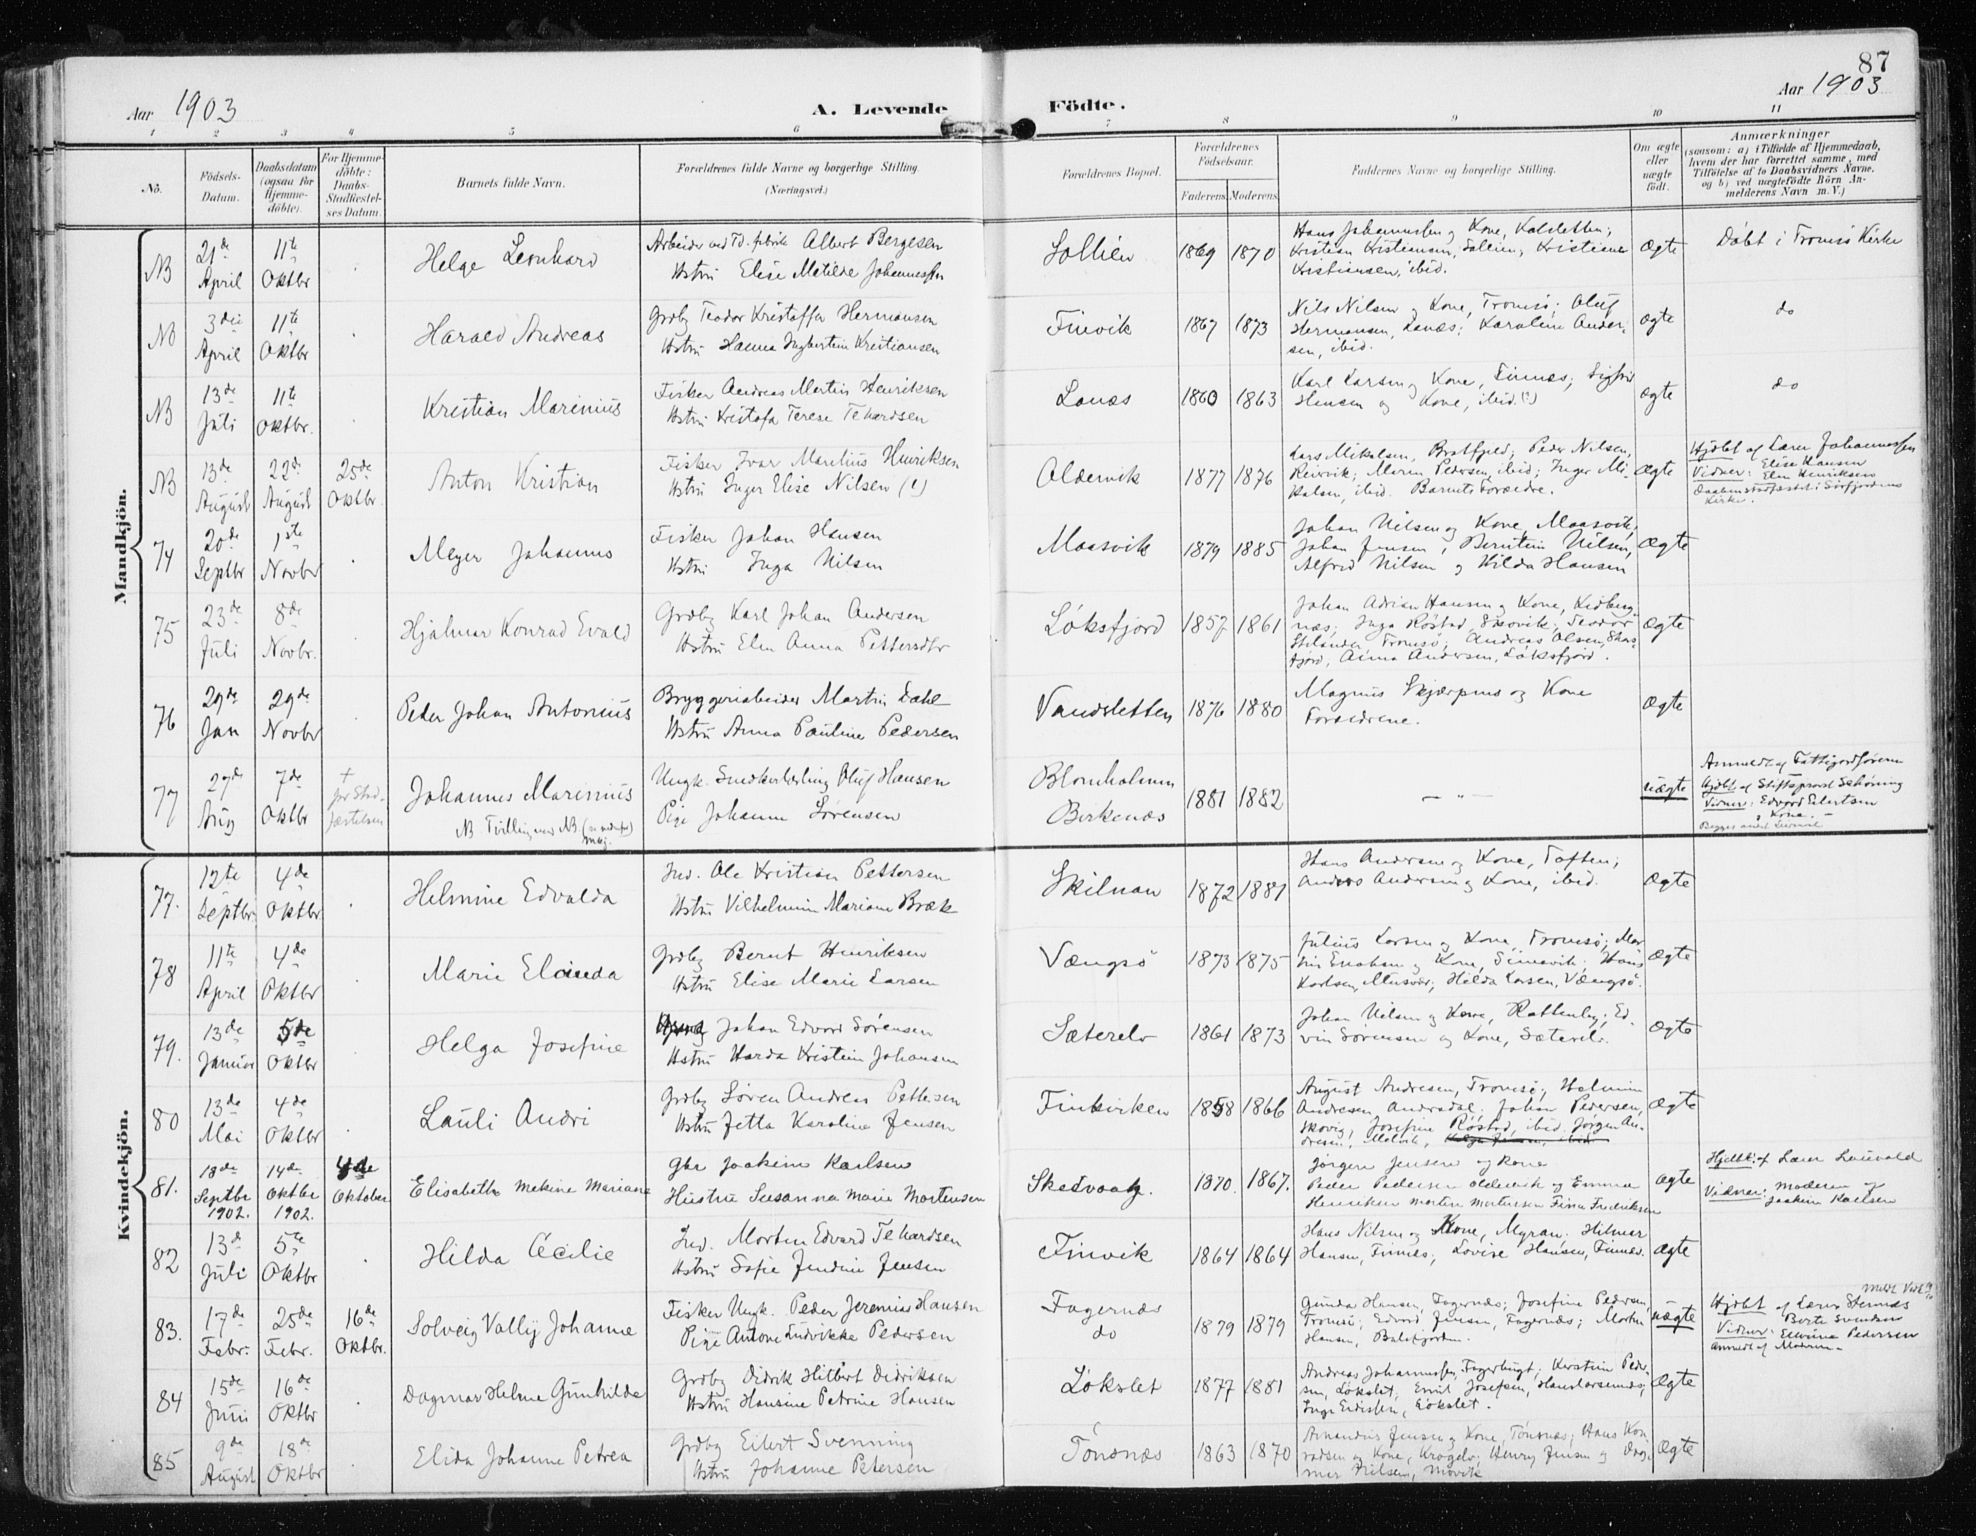 87
Aar 1903 A. Levende Födte. Aar 1903
1 2 3 4 5 6 7 8 9 10 11
No. Födsels-Datum. Daabsdatum (ogsaa for Hjemme-döbte). For Hjemme-döbte: Daabs-Stadfæstel-ses Datum. Barnets fulde Navn. Forældrenes fulde Navne og borgerlige Stilling. (Næringsvei.) Forældrenes Bopæl. Forældrenes Födselsaar. Faderens. Moderens. Faddernes Navne og borgerlige Stilling. Om ægte eller uægte födt. Anmærkninger (saasom: a) i Tilfælde af Hjemmedaab, hvem der har forrettet samme, med Tilföielse af to Daabsvidners Navne, og b) ved uægtefödte Börn An-melderens Navn m. V.)
Mandkjön.
NB 21de April 11te Oktbr Helge Leonhard Arbeider ved Td. fabrik Albert Bergesen
Hstru Elise Matilde Johannessen Sollien 1869 1870 Hans Johannessen og Kone, Kalsletten;
Kristian Kristiansen, Sollien; Kristiane
Kristiansen, ibid. Ægte Döbt i Tromsö Kirke
NB 3die April 11te Oktbr Harald Andreas Grdbr Teodor Kristoffer Hermansen
Hstru Hanna Ingbertine Kristiansen Finvik 1867 1873 Nils Nilsen og Kone, Tromsö; Oluf
Hermansen, Lanæs; Karoline Ander-
sen, ibid. Ægte do
NB 13de Juli 11te Oktbr. Kristian Marinius Fisker Andreas Martin Henriksen
Hstru Kristofa Terese Tehardsen Lanæs 1860 1863 Karl Larsen og Kone, Finnæs; Sigfrid
Hansen og Kone, ibid. (?) ægte do
NB 13de August 22de August 25de Oktbr. Anton Kristian Fisker Ivar Marelius Henriksen
Hstru Inger Elise Nilsen (!) Oldervik 1877 1876 Lars Mikalsen, Bratfjeld; Peder Nilsen,
Reinvik; Maren Pedersen, ibid; Inger Mi-
kalsen, ibid. Barnets Forældre. Ægte Hjdbt af Lærer Johannessen
Vidner: Elise Hansen
Elen Henriksen
Daaben stadfæstet i Sörfjordens
Kirke.
74 20de Septbr 1ste Novbr Meyer Johannes Fisker Johan Hansen
Hstru Inga Nilsen Maasvik 1879 1885 Johan Nilsen og Kone, Maasvik,
Johan Jensen, Berntein Nilsen,
Alfred Nilsen og Hilda Hansen Ægte
75 23de Juli 8de Novbr. Hjalmar Konrad Evald Grdbr Karl Johan Andersen
Hstru Elen Anna Pettersdtr Löksfjord 1857 1861 Johan Adrian Hansen og Kone, Kidberg-
næs; Inga Röstad, Skovik; Teodor
Stelander, Tromsö; Andreas Olsen, Skars-
fjord, Anna Andersen, Löksfjord. Ægte
76 29de Jan 29de Novbr Peder Johan Antonius Bryggeriarbeider Martin Dahl
Hstru Anna Pauline Pedersen Vandsletten 1876 1880 Magnus Skjærpnes og Kone
Forældrene. Ægte
77 27de Aug 7de Oktbr † för Stad-fæstelsen Johannes Marinius
NB Tvilling med NB Ungk. Snedkerlærling Oluf Hansen
Pige Johanne Sörensen Blomholmen
Birkenæs 1881 1882 — " — uægte Anmeldt af Fattigordföreren
Hjdbt af Stiftsprovst Schöning
Vidner: Edvard Eilertsen
og Kone.
Kvindekjön.
77. 12te Septbr. 4de Oktbr. Helmine Edvalda Ind. Ole Kristian Pettersen
Hstru Vilhelmine Mariane Bræk Skilnan 1872 1881 Hans Andersen og Kone, Toften;
Anders Andersen og Kone, ibid. Ægte
78 11te April 4de Oktbr Marie Elvinda Grdbr Bernt Henriksen
Hstru Elise Marie Larsen Vængsö 1873 1875 Julius Larsen og Kone, Tromsö; Mar-
tin Enoksen og Kone, Simavik; Hans
Karlsen, Musvær; Hilda Larsen, Vængsö. Ægte
79. 13de Januar 5de Oktbr Helga Josefine Johan Edvard Sörensen
Hstru Harda Kristine Johansen Sæterelv 1861 1873 Johan Nilsen og Kone, Kattenby; Ed-
vin Sörensen og Kone, Sæterelv. Ægte
80 13de Mai 4de Oktbr Lauli Andri Grdbr Sören Andreas Pettersen
Hstru Jetta Karoline Jensen Finkirken 1858 1866 August Andresen, Tromsö; Helmine
Andresen Andersdal; Johan Pedersen,
Skovig; Josefine Röstad, ibid. Jörgen An-
dresen, Malvik, Ægte
81. 18de Septbr 1902. 14de Oktbr 1902. 4de Oktober Elisabeth Mekine Mariane Gbr Joakim Karlsen
Hustru Susanna Marie Mortensen Skedvaag. 1870. 1867. Jörgen Jensen og kone
Peder Pedersen Oldervik og Emma
Henriksen Morten Mortensen Fina Fredriksen ægte Hjdbt. af Lærer Lauvald
Vidner: moderen og
Joakim Karlsen
82 13de Juli 5te Oktbr Hilda Cecilie Ind. Morten Edvard Tehardsen
Hstru Sofie Jendine Jensen Finvik 1864 1864 Hans Nilsen og Kone, Myran. Hilmar
Hansen, Finnæs; Lovise Hansen, Finnæs. Ægte
83. 17de Febr. 25de Febr. 16de Oktbr. Solveig Vally Johanne Fisker Ungk. Peder Jeremias Hansen
Pige Antone Ludvikke Pedersen Fagernæs
do 1879 1879 Gunda Hansen, Fagernæs; Josefine Pedersen,
Tromsö; Edvard Jensen, Fagernæs; Morten
Hansen, Balsfjorden. uægte Hjdbt af Lærer Stennæs
Vidner: Berte Svendsen
Elvina Pedersen
Anmeldt af Moderen
84 15de Juni 16de Oktbr Dagmar Helene Gunhilde Grdbr Didrik Hilbert Didriksen
Hstru Hansine Petrine Hansen Lökslet 1877 1881 Andreas Johannessen, Fagerbugt; Kerstine Peder-
sen, Lökslet, Emil Josefsen, Hans Larsennæs;
Inga Eidissen, Lökslet. Ægte
85 9de August 18de Oktbr Elida Johanne Petrea Grdbr Eilert Svenning
Hstru Johanne Petersen Tönsnæs 1863 1870 Amandus Jensen og Kone, Tönsnæs; Hans Kon-
radsen og Kone, Krogelv; Henry Jensen og Dag-
mar Nilsen, Movik Ægte